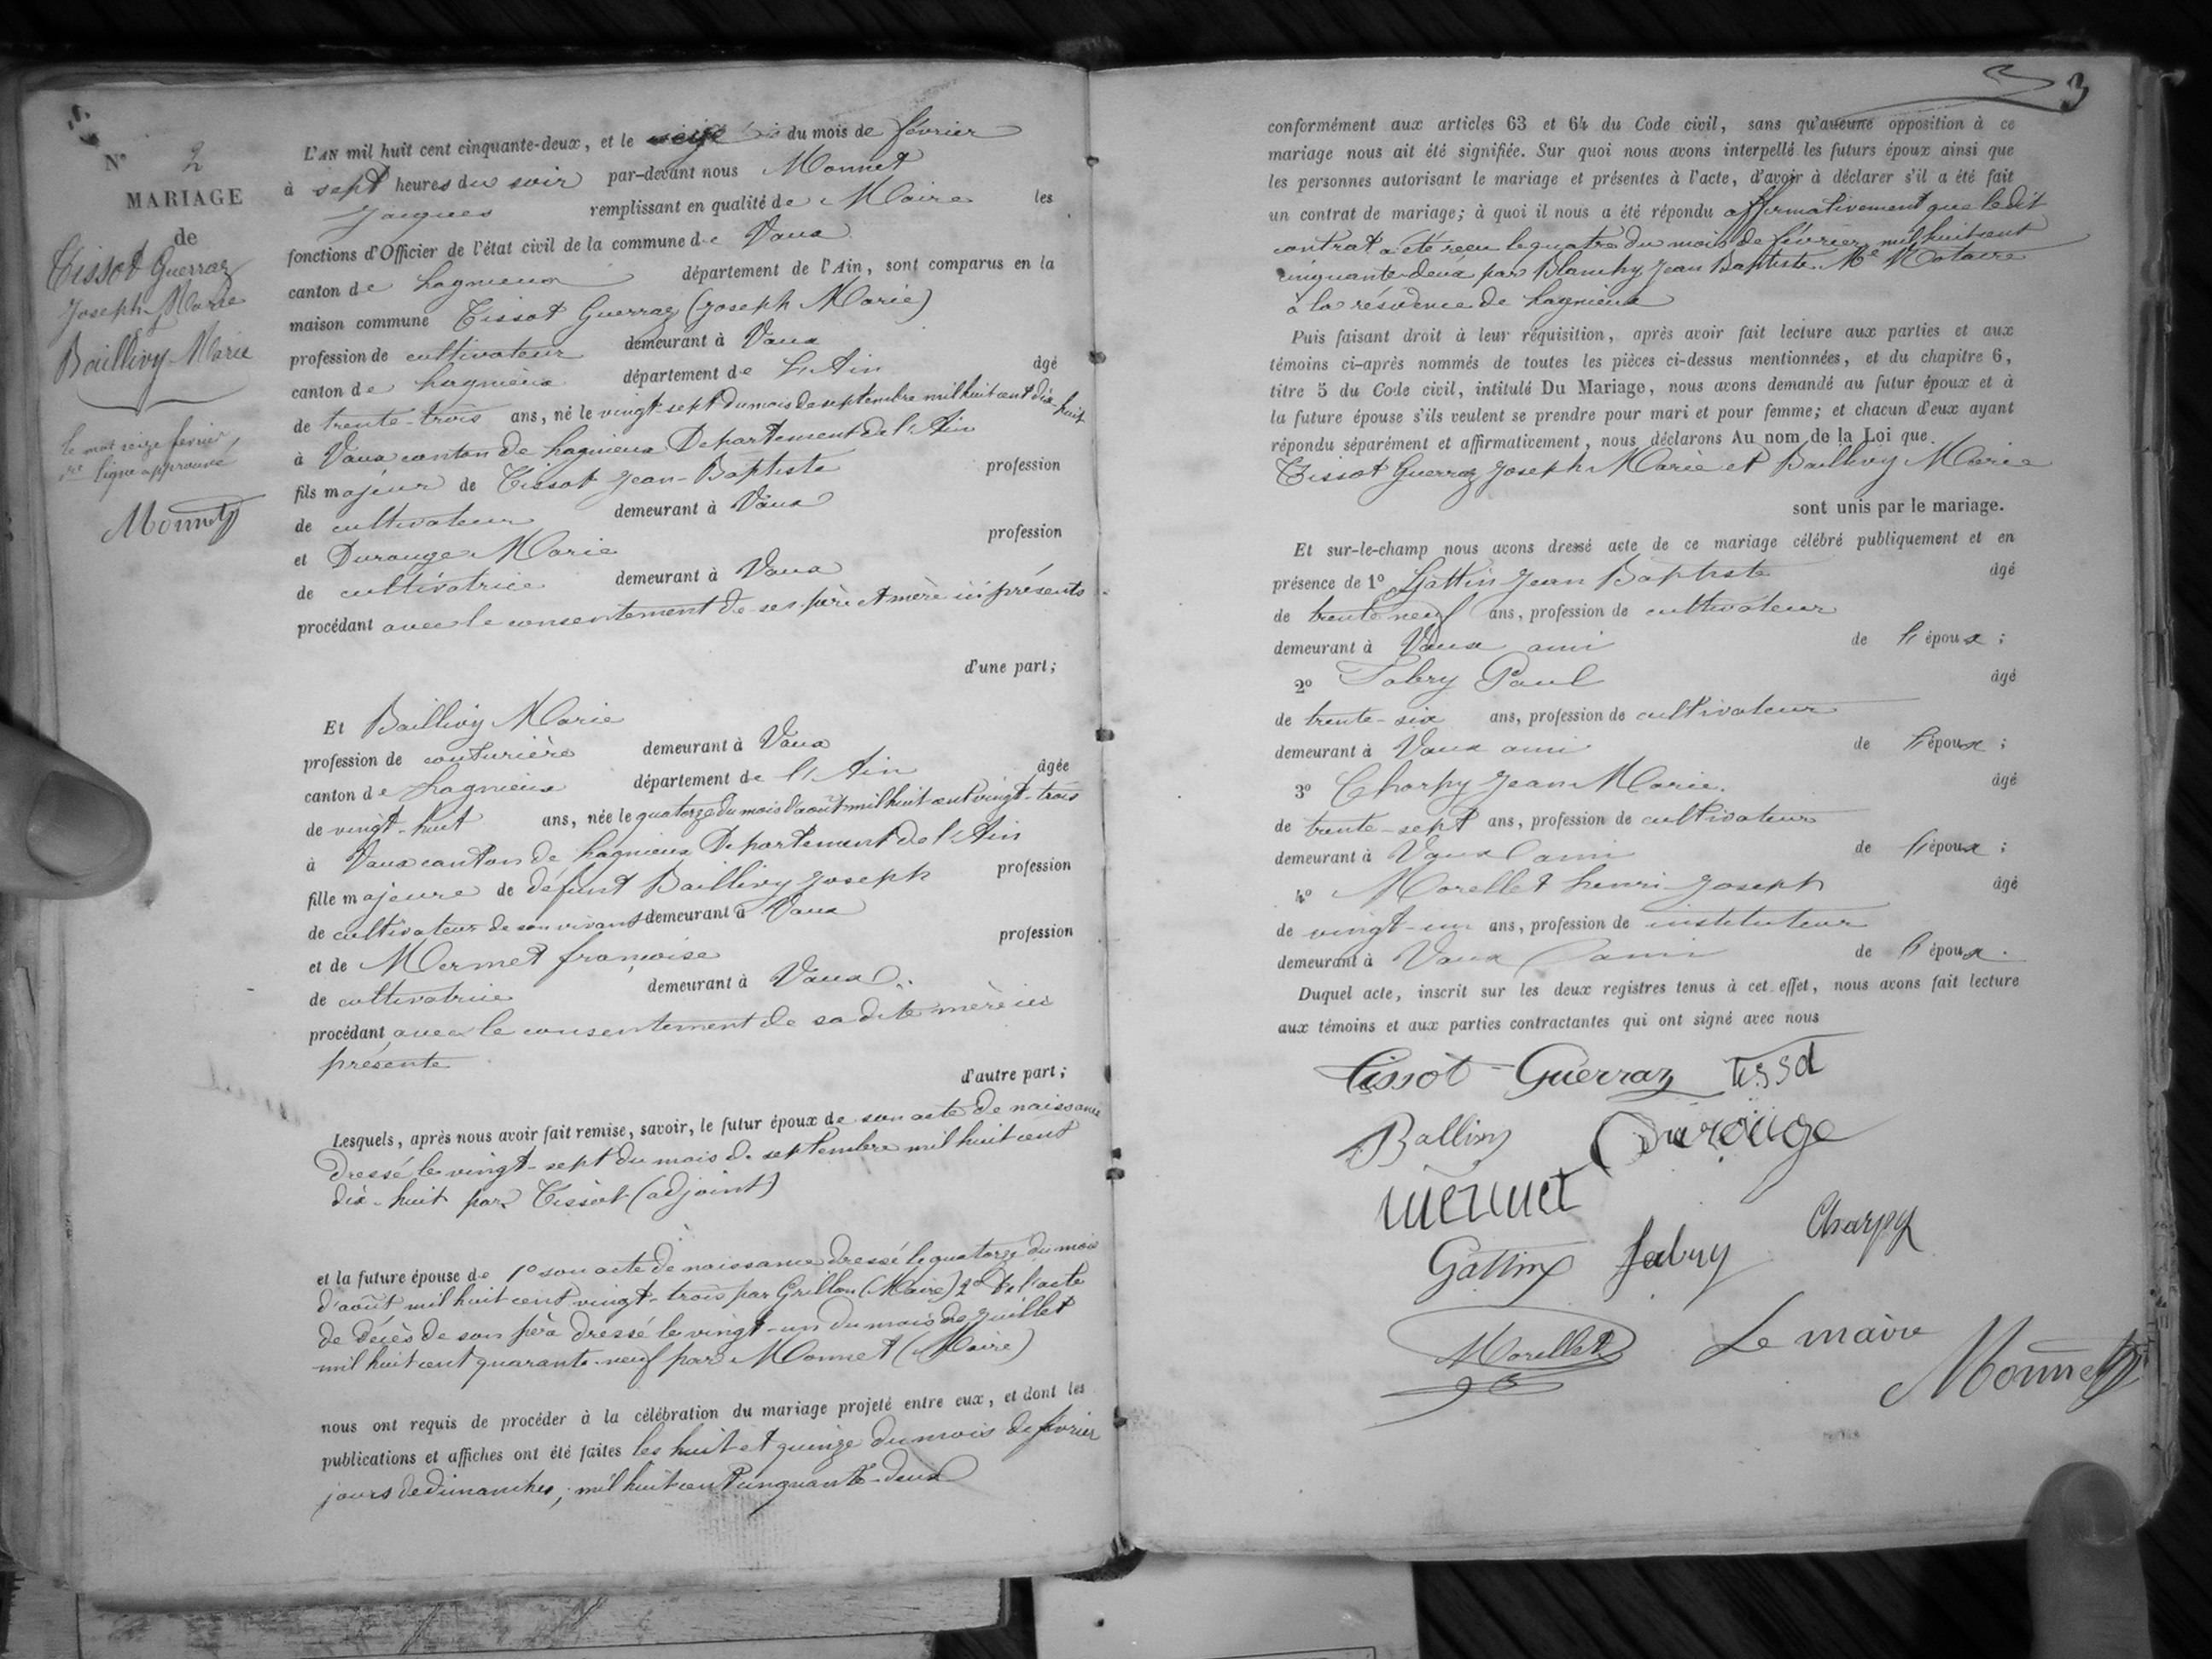 N° 2
MARIAGE
de
Tissot Guerraz
Joseph Marie
Baillivy Marie
le mot seize fevrier,
1re ligne approuvé
Monnet
L'AN mil huit cent cinquante-deux, et le seize du mois de février
à sept heures du soir par-devant nous Monnet
Jacques remplissant en qualité de Maire les
fonctions d'Officier de l'état civil de la commune de Vaux
canton de Lagnieux département de l'Ain, sont comparus en la
maison commune Tissot Guerraz (Joseph Marie)
profession de cultivateur demeurant à Vaux
canton de Lagnieux département de L'Ain âgé
de trente-trois ans, né le vingt-sept du mois de septembre mil huit cent dix-huit
à Vaux canton de Lagnieux Departement de l'Ain
fils majeur de Tissot Jean-Baptiste profession
de cultivateur demeurant à Vaux
et Durouge Marie profession
de cultivatrice demeurant à Vaux
procédant avec le consentement de ses père et mère ici présents
d'une part;
Et Baillivy Marie
profession de couturière demeurant à Vaux
canton de Lagnieux département de l'Ain âgée
de vingt-huit ans, née le quatorze du mois d'août mil huit cent vingt-trois
à Vaux canton de Lagnieux Departement de l'Ain
fille majeure de défunt Baillivy Joseph profession
de cultivateur de son vivant demeurant à Vaux
et de Mermet françoise profession
de cultivatrice demeurant à Vaux
procédant avec le consentement de sa dite mère ici
présente
d'autre part;
Lesquels, après nous avoir fait remise, savoir, le futur époux de son acte de naissance
Dressé le vingt-sept du mois de septembre mil huit cent
dix-huit par Tissot (adjoint)
et la future épouse de 1° son acte de naissance dressé le quatorze du mois
d'août mil huit cent vingt-trois par Grillon (Maire) 2° de l'acte
de décès de son père dressé le vingt-un du mois de juillet
mil huit cent quarante-neuf par Monnet (Maire)
nous ont requis de procéder à la célébration du mariage projeté entre eux, et dont les
publications et affiches ont été faites les huit et quinze du mois de février
jours de dimanches, mil huit cent cinquante-deux
3
conformément aux articles 63 et 64 du Code civil, sans qu'aucune opposition à ce
mariage nous ait été signifiée. Sur quoi nous avons interpellé les futurs époux ainsi que
les personnes autorisant le mariage et présentes à l'acte, d'avoir à déclarer s'il a été fait
un contrat de mariage; à quoi il nous a été répondu affirmativement que ledit
contrat a été reçu le quatre du mois de février mil huit cent
cinquante-deux par Blanchy Jean Baptiste Me Notaire
à la résidence de Lagnieux
Puis faisant droit à leur réquisition, après avoir fait lecture aux parties et aux
témoins ci-après nommés de toutes les pièces ci-dessus mentionnées, et du chapitre 6,
titre 5 du Code civil, intitulé Du Mariage, nous avons demandé au futur époux et à
la future épouse s'ils veulent se prendre pour mari et pour femme; et chacun d'eux ayant
répondu séparément et affirmativement, nous déclarons Au nom de la Loi que
Tissot Guerraz Joseph Marie et Baillivy Marie
sont unis par le mariage.
Et sur-le-champ nous avons dressé acte de ce mariage célébré publiquement et en
présence de 1° Gattin Jean Baptiste âgé
de trente neuf ans, profession de cultivateur
demeurant à Vaux ami de l'époux;
2° Fabry Paul âgé
de trente-six ans, profession de cultivateur
demeurant à Vaux ami de l'époux;
3° Charpy Jean Marie. âgé
de trente-sept ans, profession de cultivateur
demeurant à Vaux ami de l'époux;
4° Morellet henri Joseph âgé
de vingt-un ans, profession de instituteur
demeurant à Vaux ami de l'époux.
Duquel acte, inscrit sur les deux registres tenus à cet effet, nous avons fait lecture
aux témoins et aux parties contractantes qui ont signé avec nous
Tissot-Guerraz Tissot
Ballivy Durouge
Mermet
Gattin fabry Charpy
Morellet Le maire
Monnet